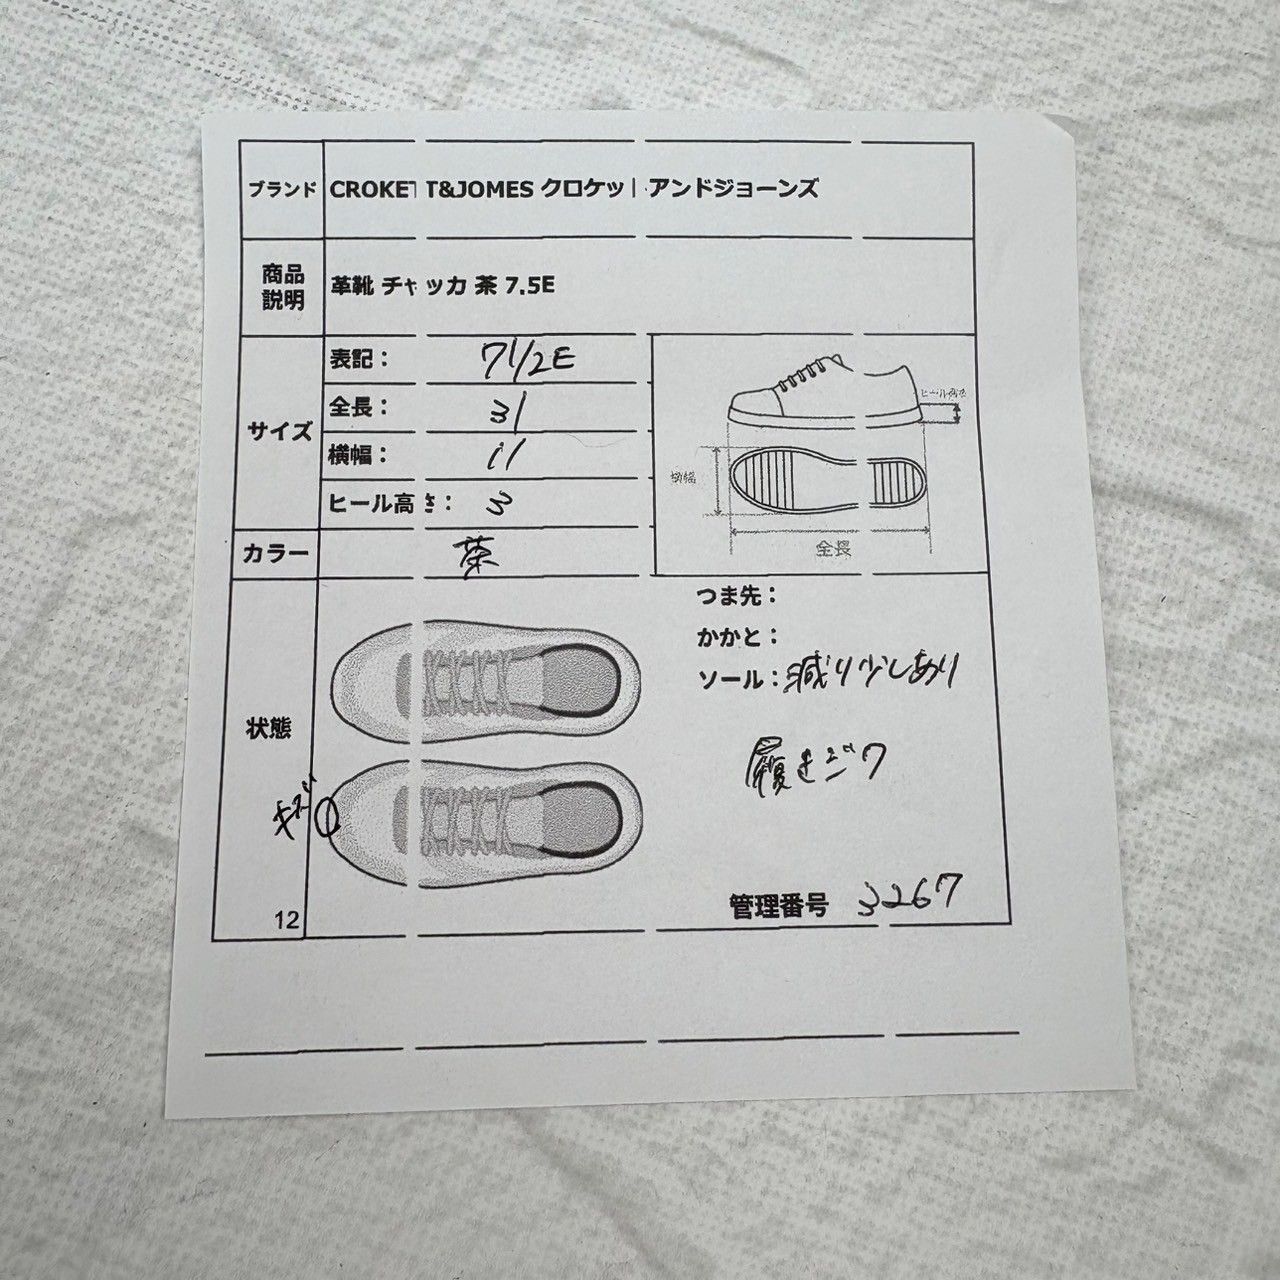 ブランド CROKETT&JOMES クロケットアンドジョーンズ
商品説明 革靴 チャッカ 茶 7.5E
サイズ
表記： 7 1/2E
全長： 31
横幅： 11
ヒール高さ： 3
ヒール高さ
横幅
全長
カラー 茶
状態
つま先：
かかと：
ソール：減り少しあり
履きジワ
キズ
12
管理番号 3267